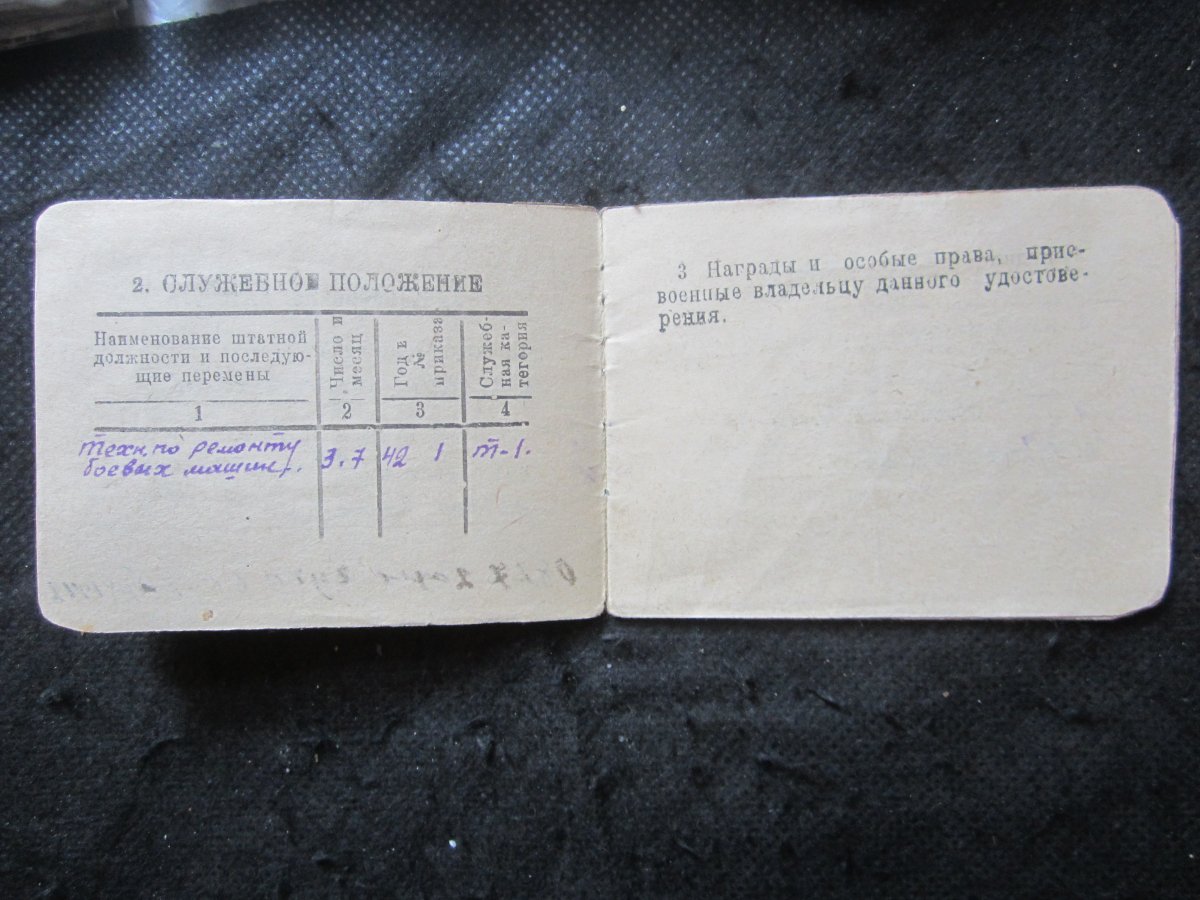 2. СЛУЖЕБНОЕ ПОЛОЖЕНИЕ
Наименование штатной
должности и последую-
щие перемены
Число и
месяц
Год и
№
приказа
Служеб-
ная ка-
тегория
1 2 3 4
Техн. по ремонту
боевых машин.
3.7 42 1 т-1.
3 Награды и особые права, прис-
военные владельцу данного удостове-
рения.